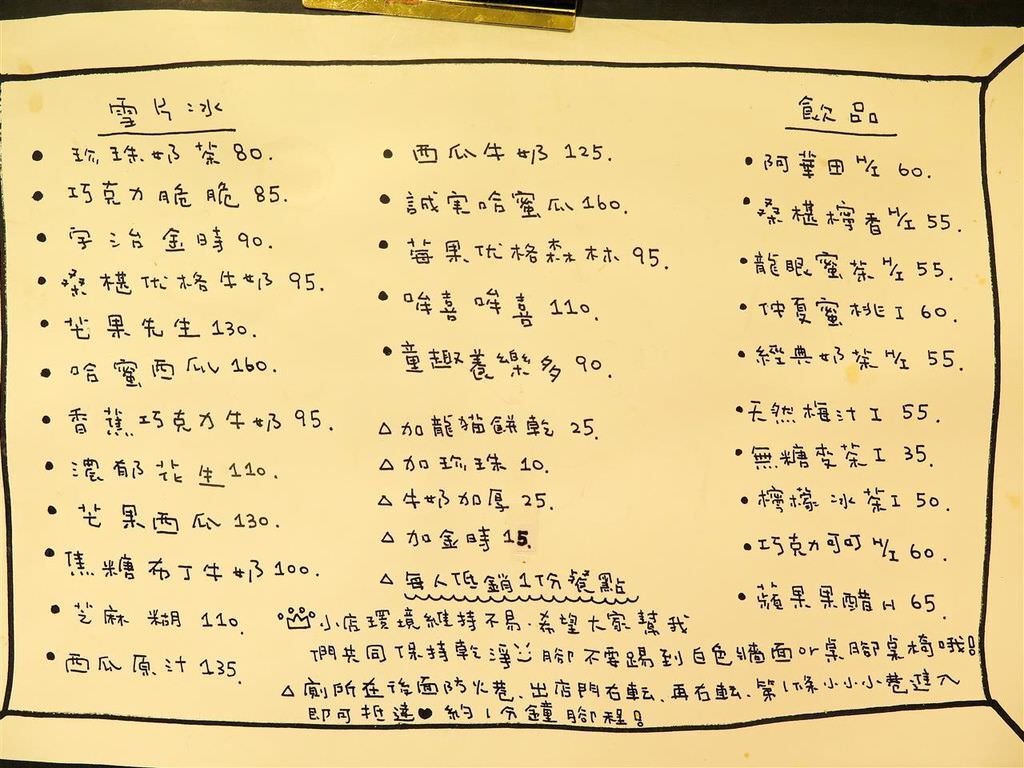 雪片冰
• 珍珠奶茶 80.
• 巧克力脆脆 85.
• 宇治金時 90.
• 桑椹优格牛奶 95.
• 芒果先生 130.
• 哈蜜西瓜 160.
• 香蕉巧克力牛奶 95.
• 濃郁花生 110.
• 芒果西瓜 130.
• 焦糖布丁牛奶 100.
• 芝麻糊 110.
• 西瓜原汁 135.
• 西瓜牛奶 125.
• 誠実哈蜜瓜 160.
• 莓果优格森林 95.
• 哞喜哞喜 110.
• 童趣養樂多 90.
△ 加龍貓餅乾 25.
△ 加珍珠 10.
△ 牛奶加厚 25.
△ 加金時 15.
△ 每人低銷1份餐點
小店環境維持不易.希望大家幫我
們共同保持乾淨 腳不要踢到白色牆面or桌腳桌椅哦!
△ 廁所在後面防火巷.出店門右転.再右転.第1條小小小巷進入
即可抵達♥約1分鐘腳程!
飲品
• 阿華田 H/I 60.
• 桑椹檸香 H/I 55.
• 龍眼蜜茶 H/I 55.
• 仲夏蜜桃 I 60.
• 經典奶茶 H/I 55.
• 天然梅汁 I 55.
• 無糖麥茶 I 35.
• 檸檬冰茶 I 50.
• 巧克力可可 H/I 60.
• 蘋果果醋 H 65.